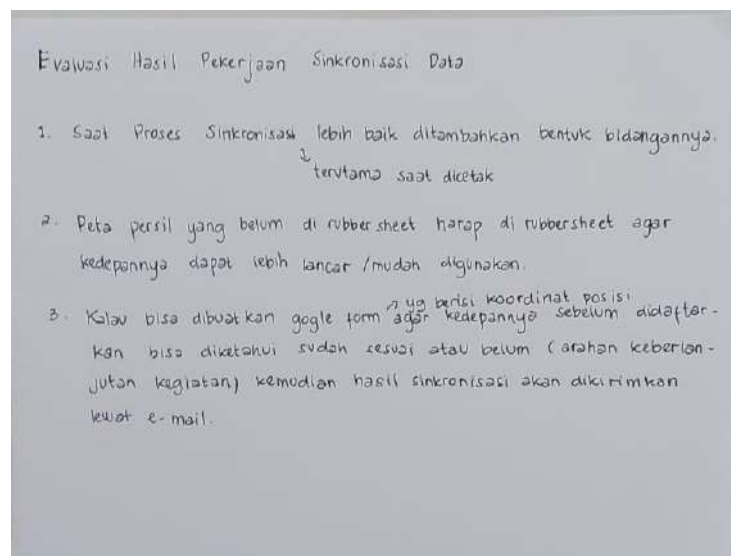 Evaluasi Hasil Pekerjaan Sinkronisasi Data
1. Saat Proses Sinkronisasi lebih baik ditambahkan bentuk bidangannya.
↓ terutama saat dicetak
2. Peta persil yang belum di rubber sheet harap di rubbersheet agar
kedepannya dapat lebih lancar /mudah digunakan.
→ yg berisi koordinat posisi
3. Kalau bisa dibuatkan gogle form agar kedepannya sebelum didaftar-
kan bisa diketahui sudah sesuai atau belum (arahan keberlan-
jutan kegiatan) kemudian hasil sinkronisasi akan dikirimkan
lewat e-mail.